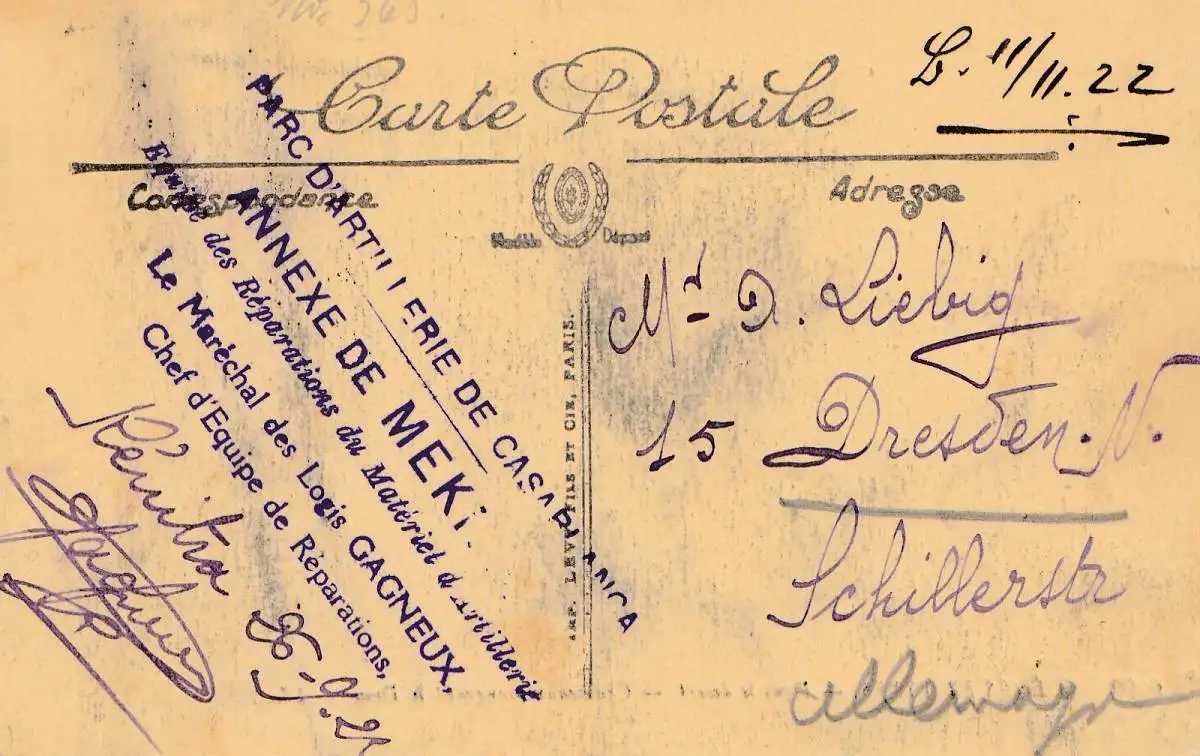 No. 363.
Carte Postale
L. 11/11.22
Correspondance
Adresse
Modèle Déposé
PARC D'ARTILLERIE DE CASABLANCA
ANNEXE DE MEK
Equipe des Réparations du Matériel d'Artillerie
Le Maréchal des Logis GAGNEUX,
Chef d'Equipe de Réparations,
Kénitra
Gagneux
IMP. LEVY FILS ET CIE, PARIS.
Mr D. Liebig
15 Dresden. N.
Schillerstr
Allemagne